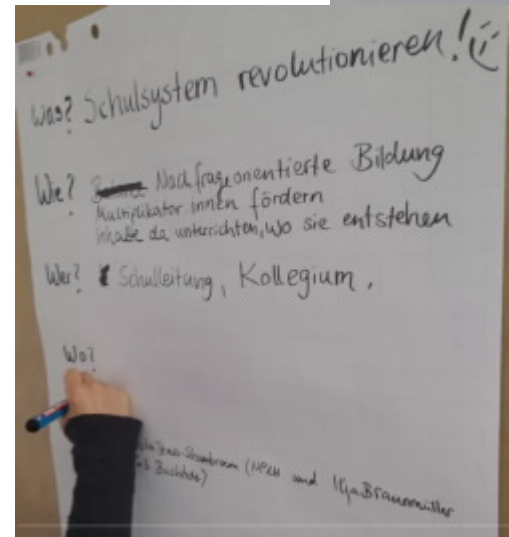 Was? Schulsystem revolutionieren!
Wie? Nachfrageorientierte Bildung
Multiplikator:innen fördern
Inhalte da unterrichten, wo sie entstehen
Wer? Schulleitung, Kollegium,
Wo?
und